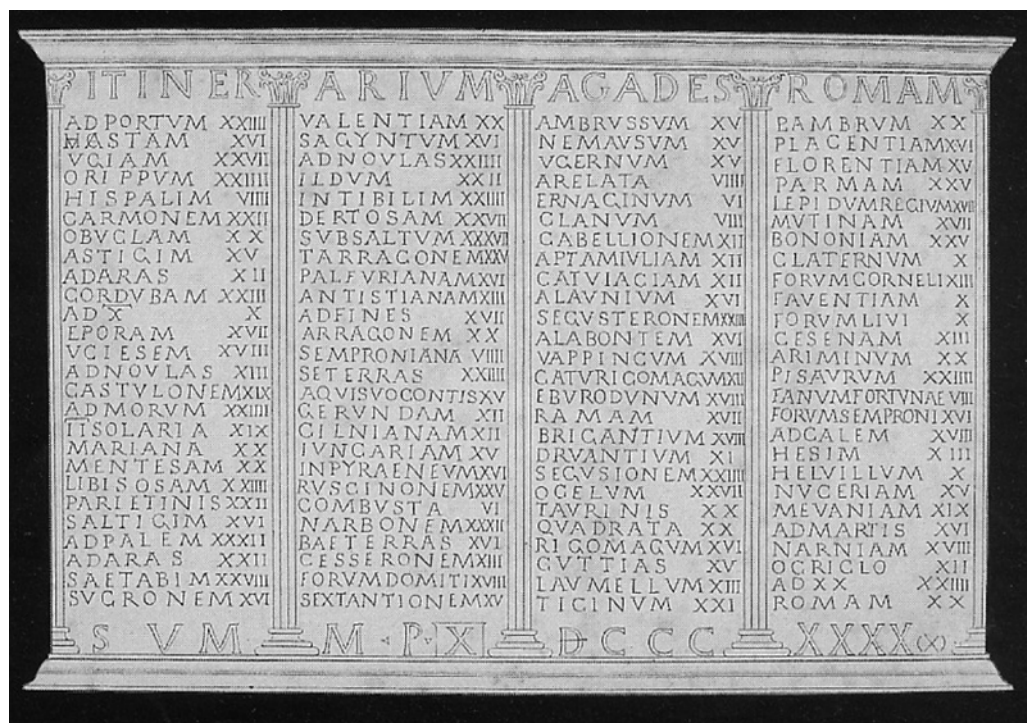 ITINERARIVM AGADES ROMAM
ADPORTVM XXIIII
HASTAM XVI
VGIAM XXVII
ORIPPVM XXIIII
HISPALIM VIIII
CARMONEM XXII
OBVCLAM XX
ASTIGIM XV
ADARAS XII
CORDVBAM XXIII
AD X X
EPORAM XVII
VCIESEM XVIII
ADNOVLAS XIII
CASTVLONEM XIX
ADMORVM XXIIII
II SOLARIA XIX
MARIANA XX
MENTESAM XX
LIBISOSAM XXIIII
PARIETINIS XXII
SALTIGIM XVI
ADPALEM XXXII
ADARAS XXII
SAETABIM XXVIII
SVCRONEM XVI
VALENTIAM XX
SAGYNTVM XVI
ADNOVLAS XXIIII
ILDVM XXII
INTIBILIM XXIIII
DERTOSAM XXVII
SVBSALTVM XXXVII
TARRAGONEM XXV
PALFVRIANAM XVI
ANTISTIANAM XIII
ADFINES XVII
ARRAGONEM XX
SEMPRONIANA VIIII
SETERRAS XXIIII
AQVISVOCONTIS XV
GERVNDAM XII
CILNIANAM XII
IVNCARIAM XV
INPYRAENEVM XVI
RVSCINONEM XXV
COMBVSTA VI
NARBONEM XXXII
BAETERRAS XVI
CESSERONEM XIII
FORVMDOMITI XVIII
SEXTANTIONEM XV
AMBRVSSVM XV
NEMAVSVM XV
VGERNVM XV
ARELATA VIIII
ERNAGINVM VI
GLANVM VIII
CABELLIONEM XII
APTAMIVLIAM XII
CATVIACIAM XII
ALAVNIVM XVI
SEGVSTERONEM XXIIII
ALABONTEM XVI
VAPPINCVM XVIII
CATVRIGOMAGVM XII
EBVRODVNVM XVIII
RAMAM XVII
BRIGANTIVM XVIII
DRVANTIVM XI
SEGVSIONEM XXIIII
OCELVM XXVII
TAVRINIS XX
QVADRATA XX
RIGOMAGVM XVI
CVTTIAS XV
LAVMELLVM XIII
TICINVM XXI
RAMBRVM XX
PLACENTIAM XVI
FLORENTIAM XV
PARMAM XXV
LEPIDVMREGIVM XVII
MVTINAM XVII
BONONIAM XXV
CLATERNVM X
FORVMCORNELI XIII
FAVENTIAM X
FORVMLIVI X
CESENAM XIII
ARIMINVM XX
PISAVRVM XXIIII
FANVMFORTVNAE VIII
FORVMSEMPRONI XVI
ADCALEM XVIII
HESIM XIII
HELVILLVM X
NVCERIAM XV
MEVANIAM XIX
ADMARTIS XVI
NARNIAM XVIII
OCRICLO XII
AD XX XXIIII
ROMAM XX
SVM M P X D CCC XXXX(X)